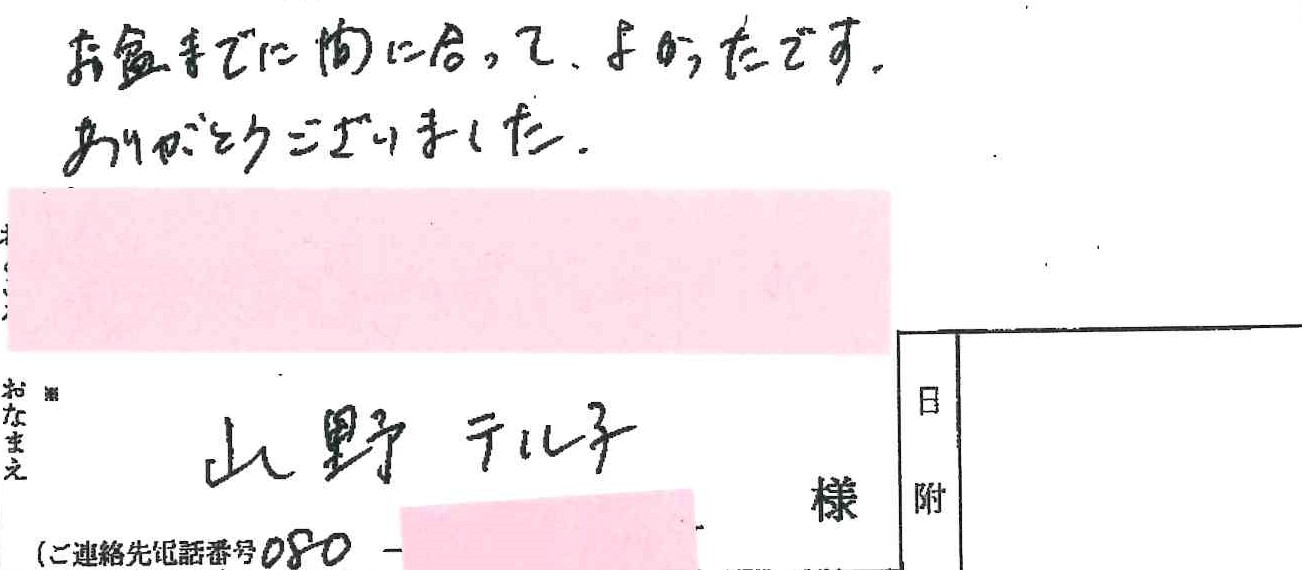 お盆までに間に合って、よかったです.
ありがとうございました.
おなまえ
※
山野 テル子
様
日附
(ご連絡先電話番号 080 -